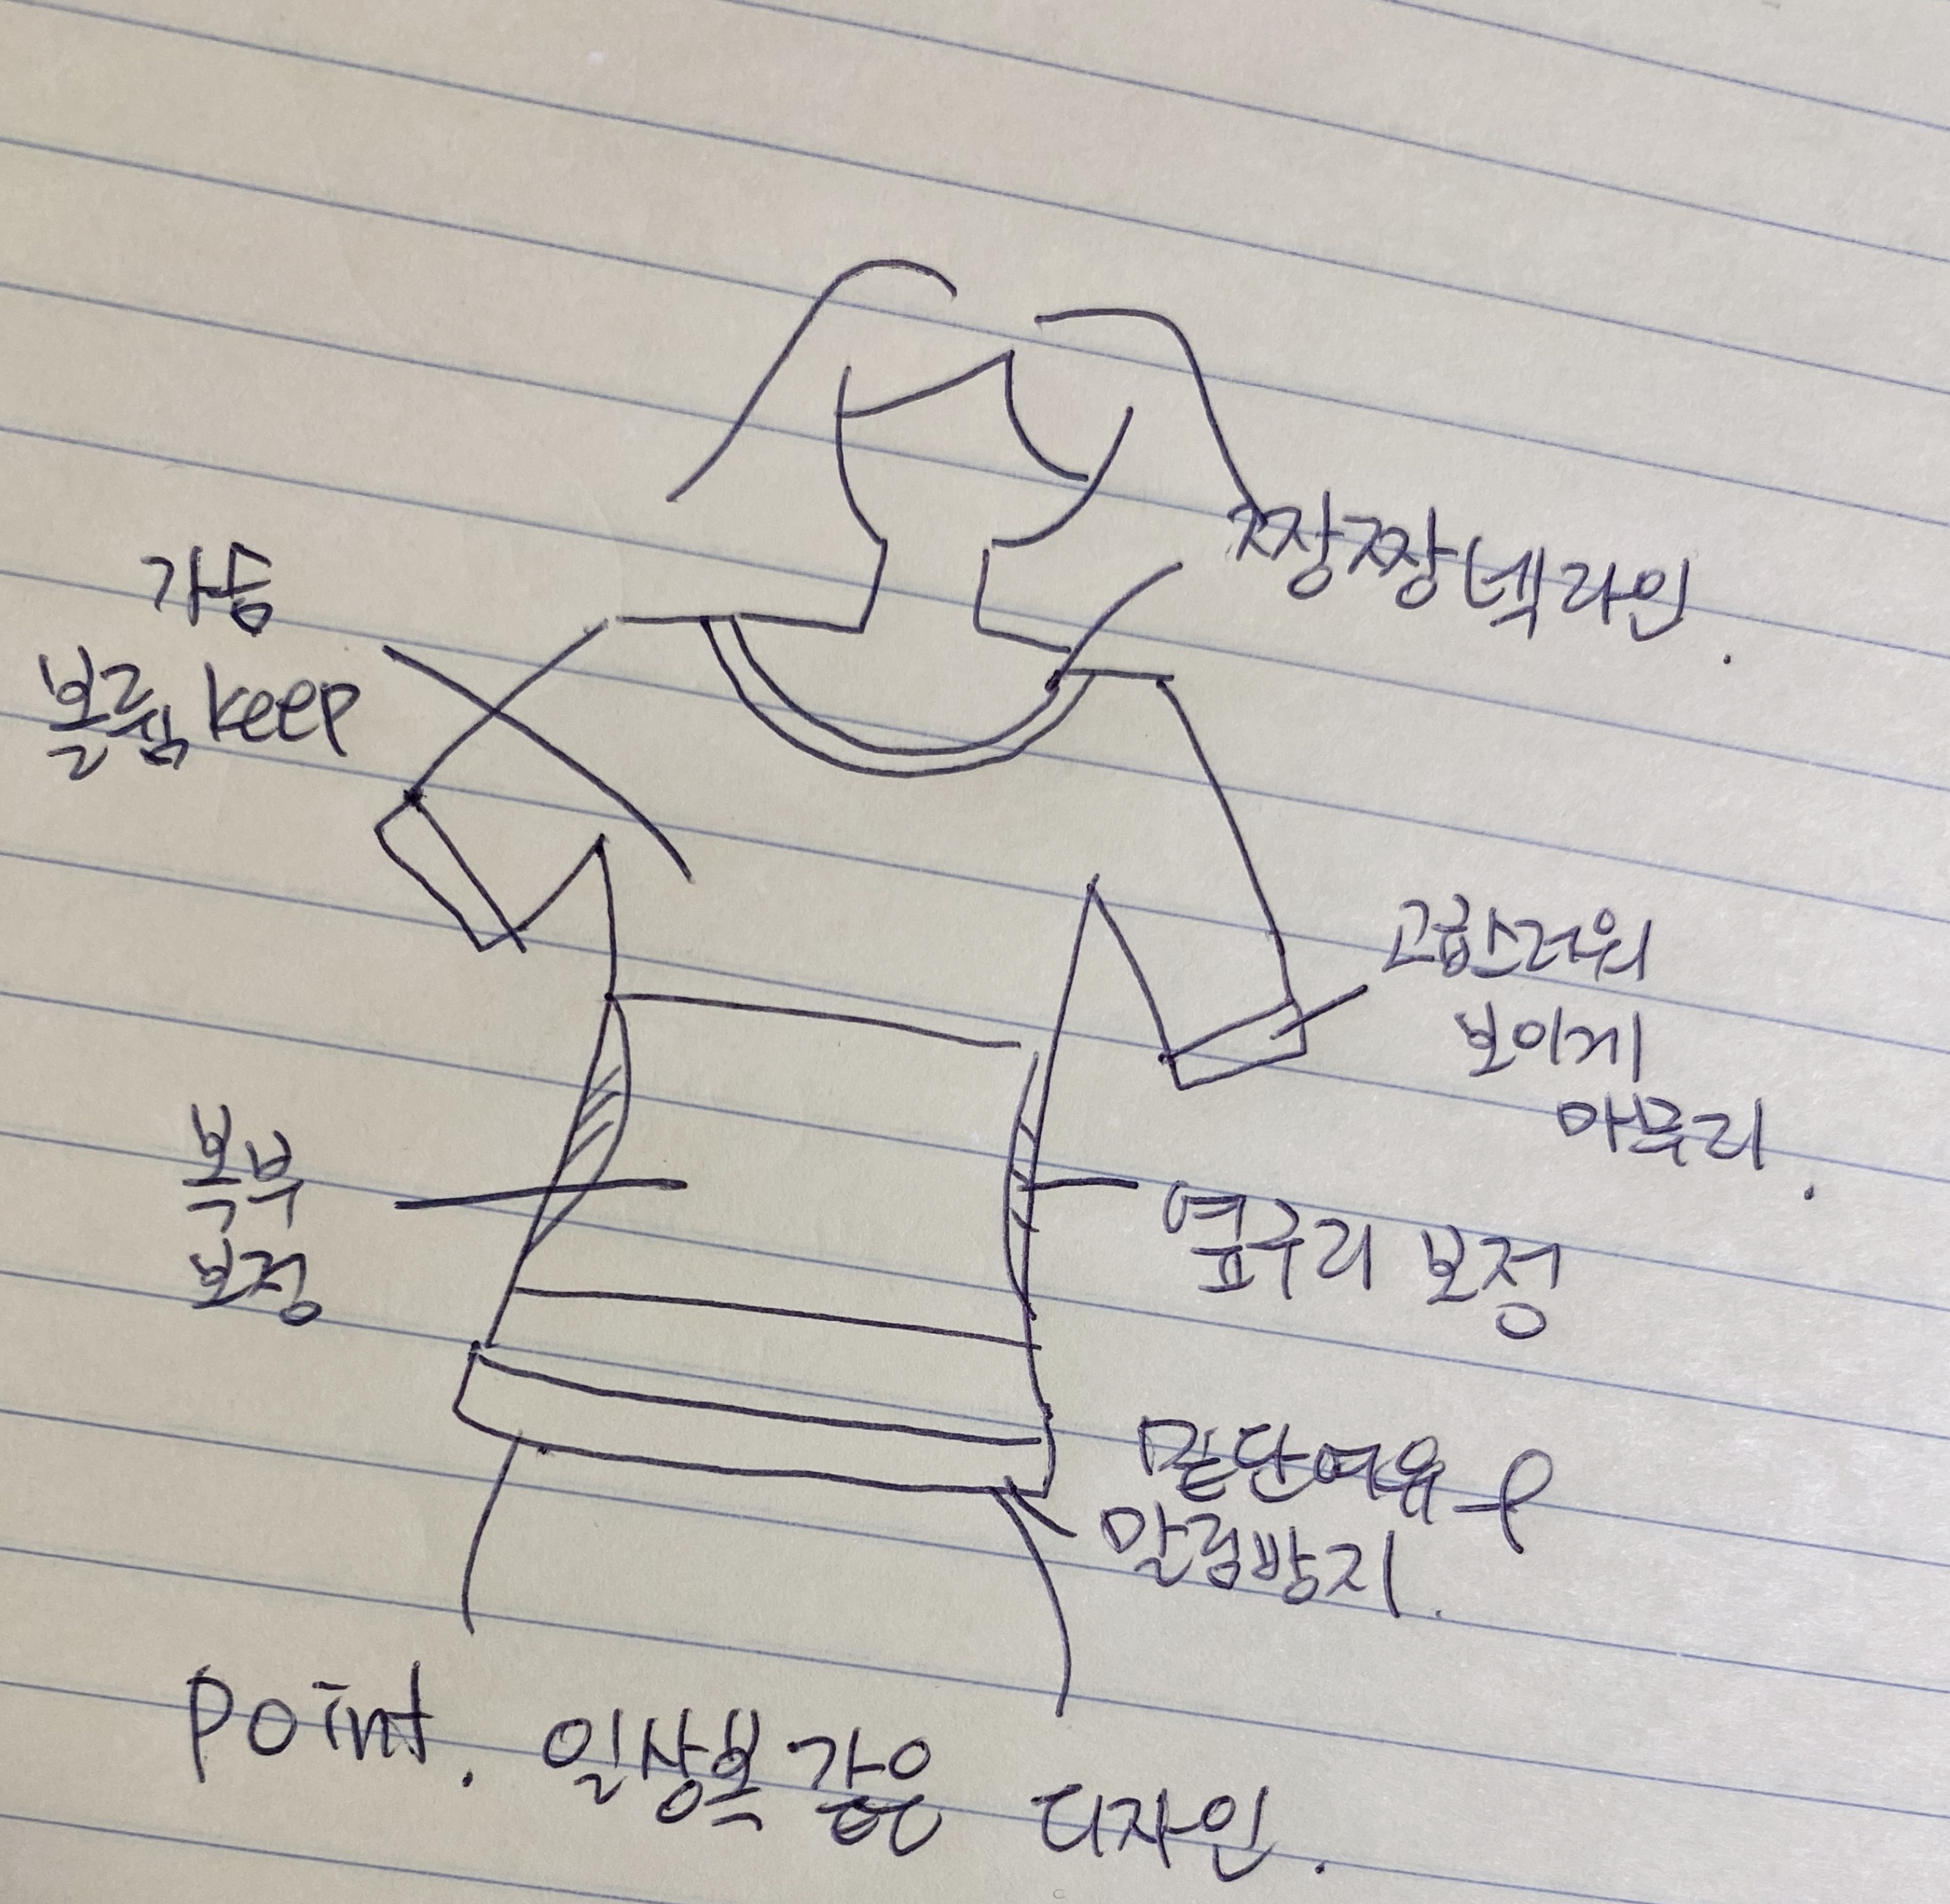 짱짱넥라인.
가슴
볼륨 keep
고급스러워
보이게
마무리.
복부
보정
옆구리 보정
밑단여유
말림방지.
point. 일상복 같은 디자인.